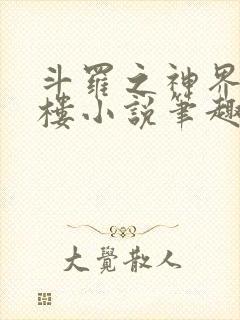 斗羅之神界
樓小說筆趣
大覺散人